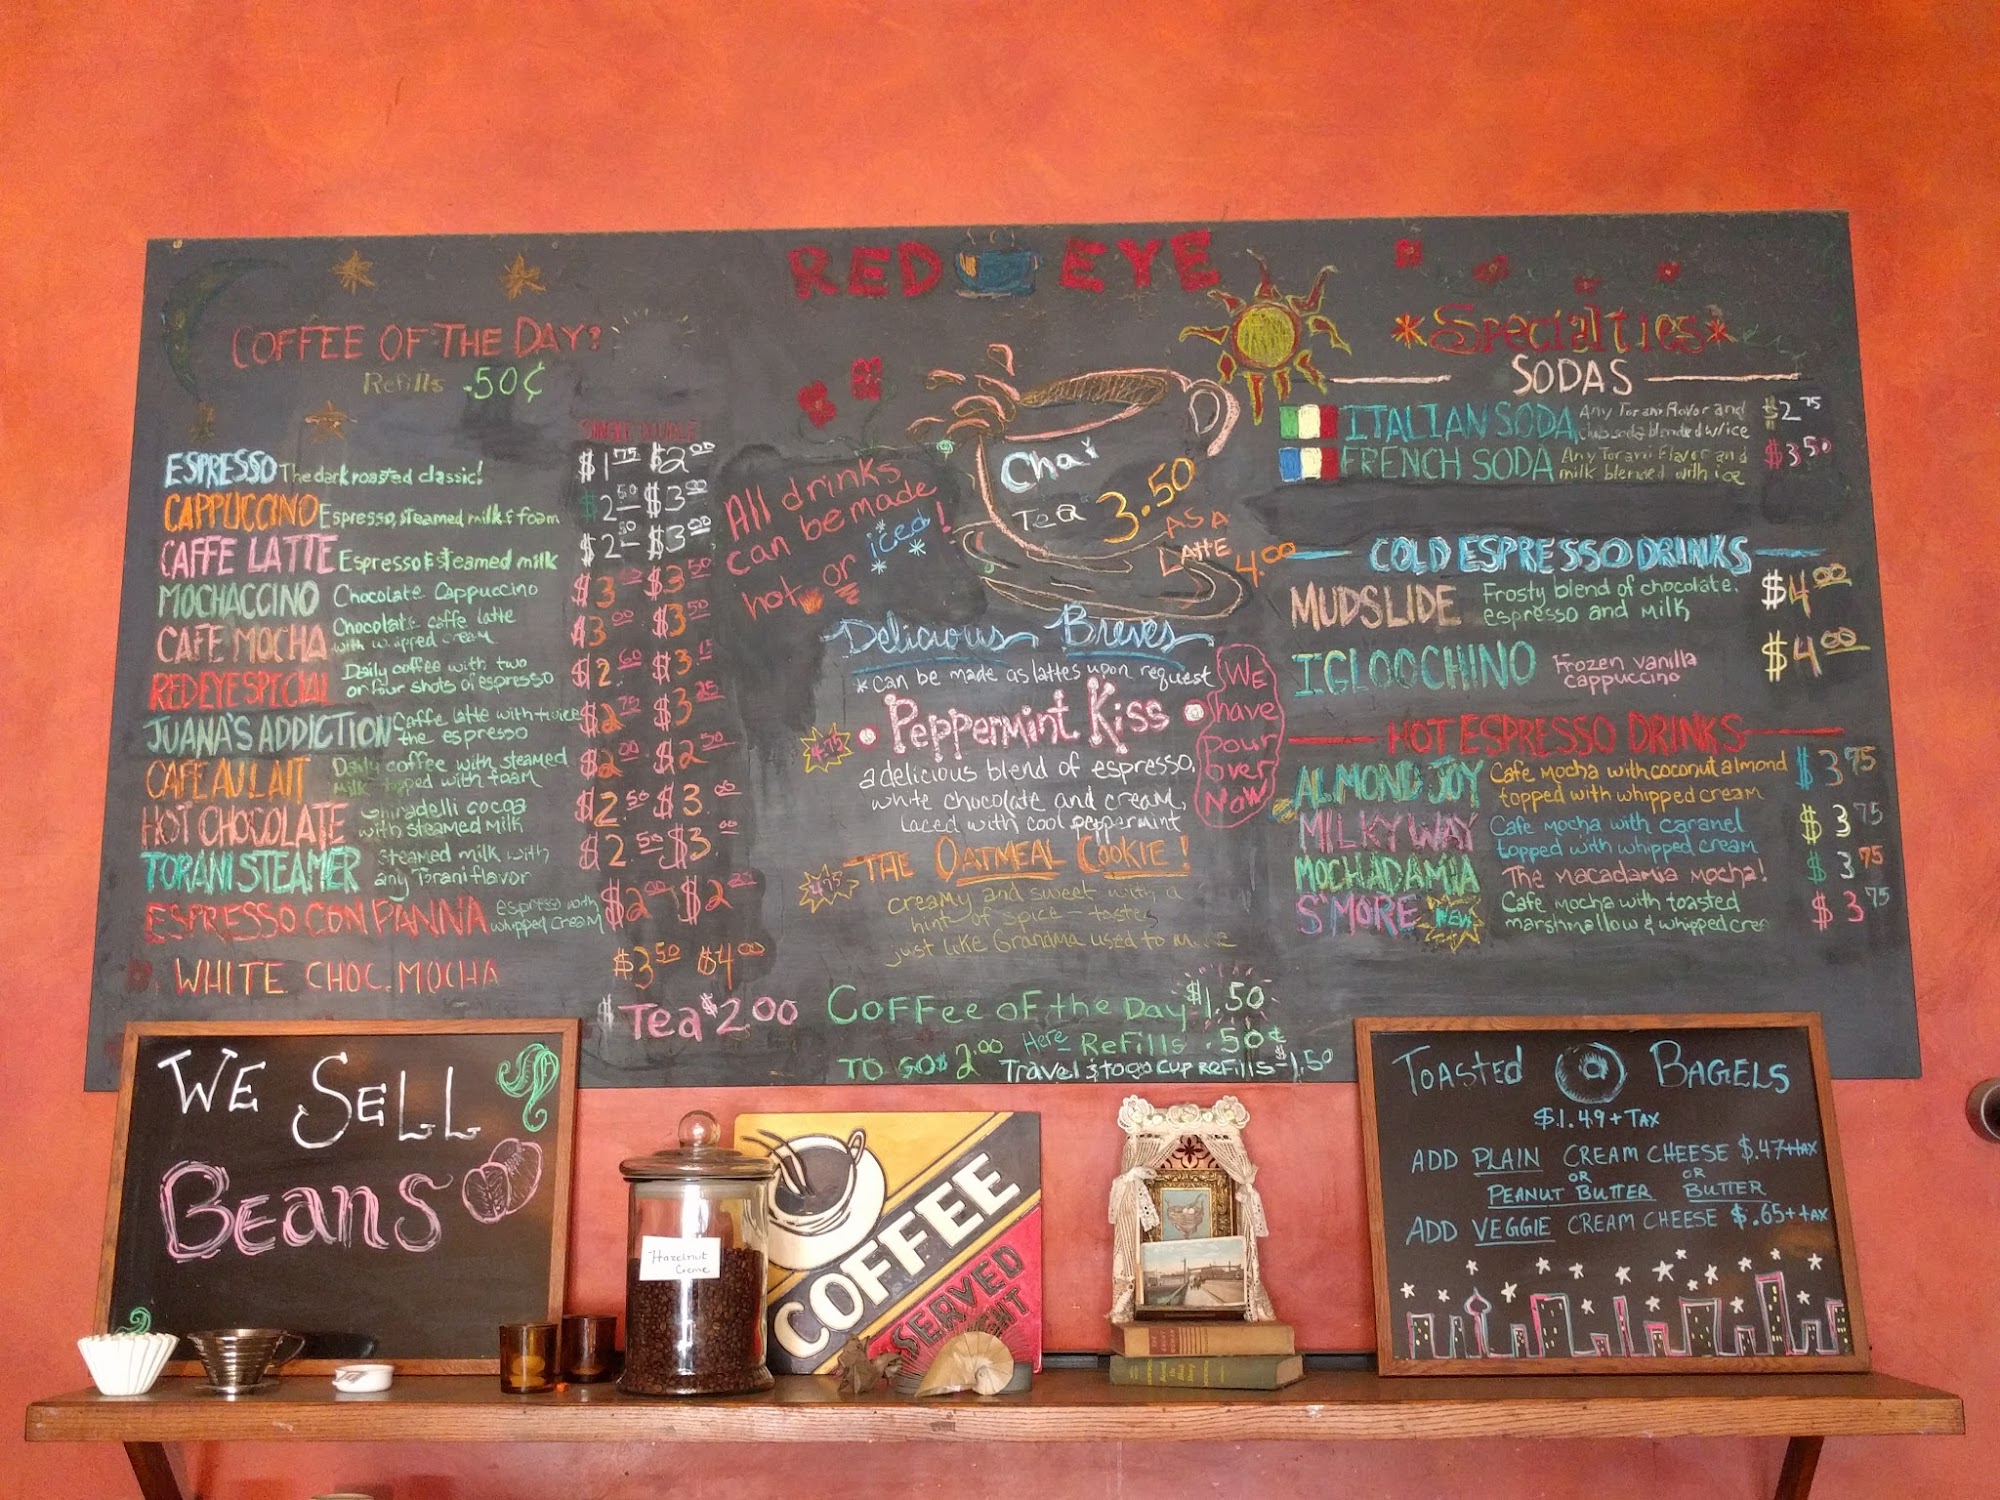 RED EYE
COFFEE OF THE DAY?
Refills .50¢
SINGLE DOUBLE
ESPRESSO The dark roasted classic! $1.75 $2.00
CAPPUCCINO Espresso, steamed milk & foam $2.50 $3.00
CAFFE LATTE Espresso & steamed milk $2.50 $3.00
MOCHACCINO Chocolate Cappuccino $3.00 $3.50
CAFE MOCHA Chocolate caffe latte $3.00 $3.50
with whipped cream
RED EYE SPECIAL Daily coffee with two $2.60 $3.15
or four shots of espresso
JUANA'S ADDICTION Caffe latte with twice $2.75 $3.25
the espresso
CAFE AU LAIT Daily coffee with steamed $2.00 $2.50
milk topped with foam
HOT CHOCOLATE Ghiradelli cocoa $2.50 $3.00
with steamed milk
TORANI STEAMER steamed milk with $2.50 $3.00
any Torani flavor
ESPRESSO CON PANNA espresso with $2.00 $2.25
whipped cream
WHITE CHOC. MOCHA $3.50 $4.00
$ Tea $2.00
All drinks
can be made
hot or iced!
Chai
Tea 3.50
AS A
LATTE 4.00
Delicious Breves
*can be made as lattes upon request
Peppermint Kiss
4.75
a delicious blend of espresso,
white chocolate and cream,
laced with cool peppermint
THE OATMEAL COOKIE!
4.75
creamy and sweet with a
hint of spice - tastes
just like Grandma used to make
WE
have
pour
over
NOW
COFFee OF the Day $1.50
Here Refills .50¢
TO GO $2.00 Travel & to go cup refills - $1.50
*Specialties*
SODAS
ITALIAN SODA Any Torani flavor and $2.75
club soda blended w/ice
FRENCH SODA Any Torani flavor and $3.50
milk blended with ice
COLD ESPRESSO DRINKS
MUDSLIDE Frosty blend of chocolate, $4.00
espresso and milk
IGLOOCHINO Frozen vanilla $4.00
cappuccino
HOT ESPRESSO DRINKS
ALMOND JOY Cafe mocha with coconut almond $3.75
topped with whipped cream
MILKY WAY Cafe mocha with caramel $3.75
topped with whipped cream
MOCHADAMIA The macadamia mocha! $3.75
S'MORE NEW Cafe mocha with toasted $3.75
marshmallow & whipped crea
WE SELL
BEANS
Hazelnut
Creme
COFFEE
SERVED
TOASTED BAGELS
$1.49 + TAX
ADD PLAIN CREAM CHEESE $.47+tax
OR OR
PEANUT BUTTER BUTTER
ADD VEGGIE CREAM CHEESE $.65+tax